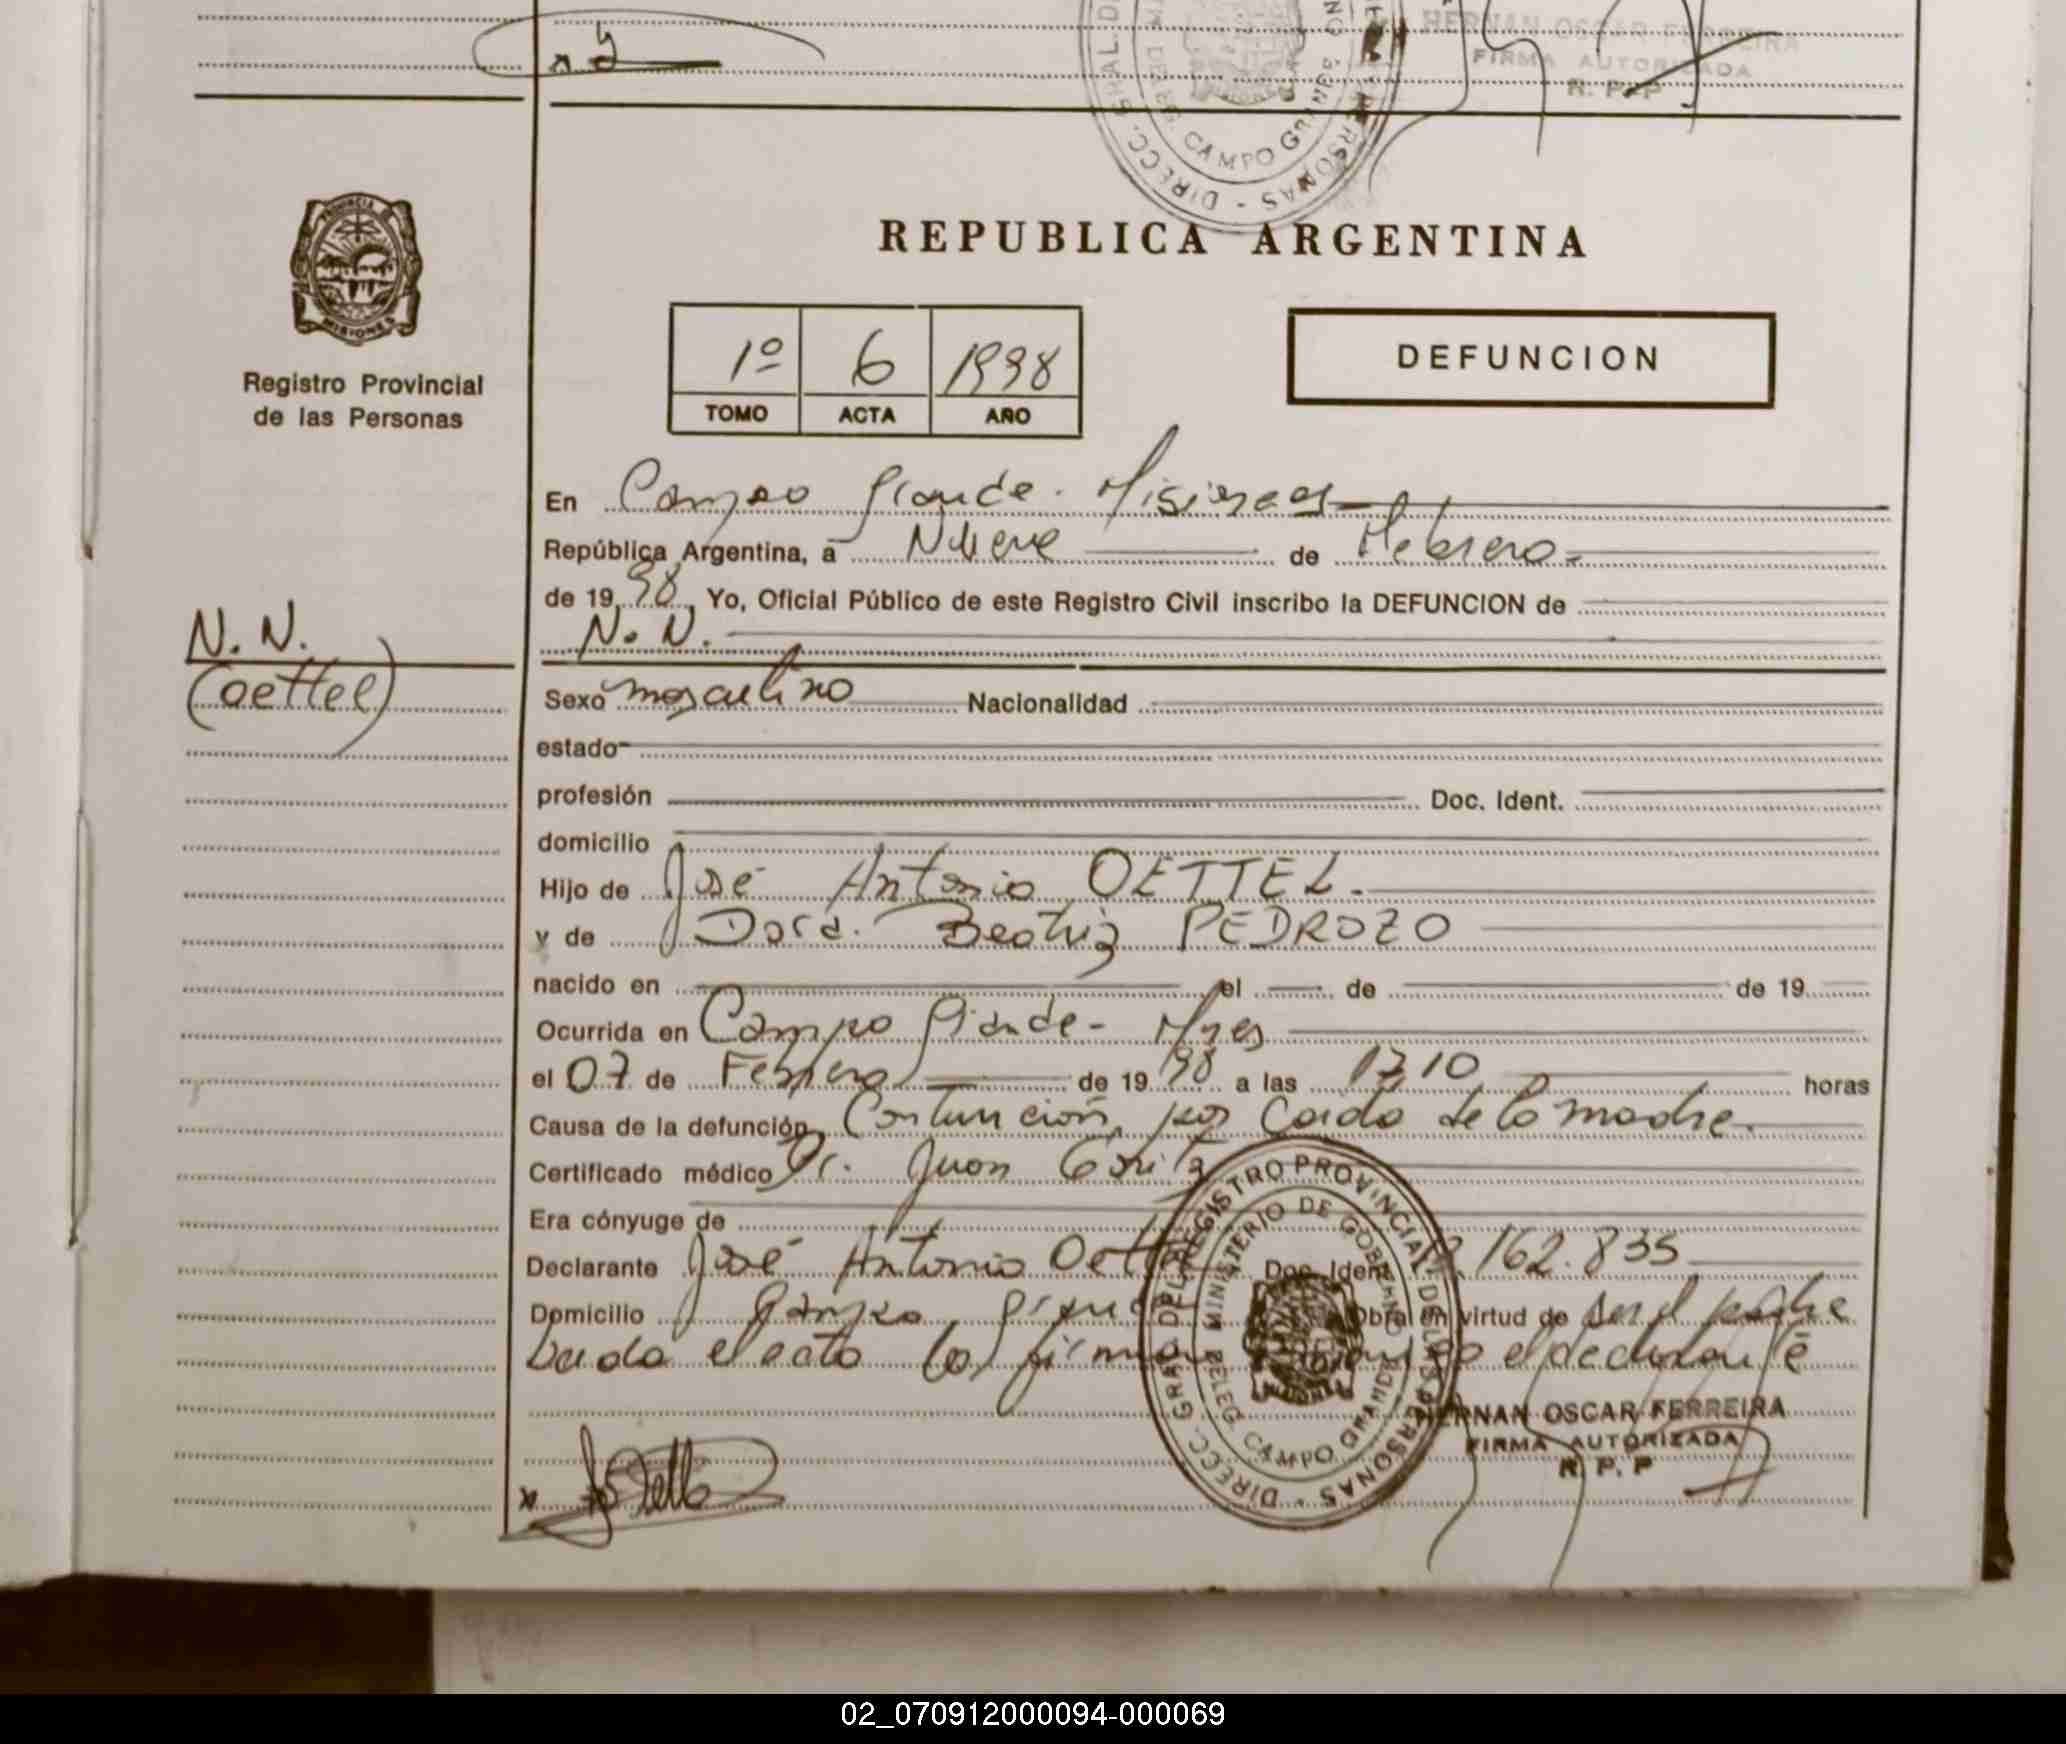 HERNAN OSCAR FERREIRA
FIRMA AUTORIZADA
R. P. P
CAMPO GRANDE
PROVINCIA DE
MISIONES
Registro Provincial
de las Personas
REPUBLICA ARGENTINA
1º 6 1998
TOMO ACTA AÑO
DEFUNCION
En Campo Grande - Misiones
República Argentina, a Nueve de Febrero
de 19 98, Yo, Oficial Público de este Registro Civil inscribo la DEFUNCION de
N. N.
N. N.
(oettel)
Sexo masculino Nacionalidad
estado
profesión Doc. Ident.
domicilio
Hijo de José Antonio OETTEL
y de Dora Beatriz PEDROZO
nacido en el de de 19
Ocurrida en Campo Grande - Mnes
el 07 de Febrero de 19 98 a las 17 10 horas
Causa de la defunción Contunción por Caida de la madre.
Certificado médico Dr. Juan
Era cónyuge de
Declarante José Antonio Oettel Doc. Ident. 162.835
Domicilio Campo Grande Obra en virtud de ser el padre
Leida el acta la firma el declarante
DIRECC. GRAL. DEL REGISTRO PROVINCIAL DE LAS PERSONAS
MINISTERIO DE GOBIERNO
DELEG. CAMPO GRANDE
MISIONES
HERNAN OSCAR FERREIRA
FIRMA AUTORIZADA
R. P. P
x
02_070912000094-000069